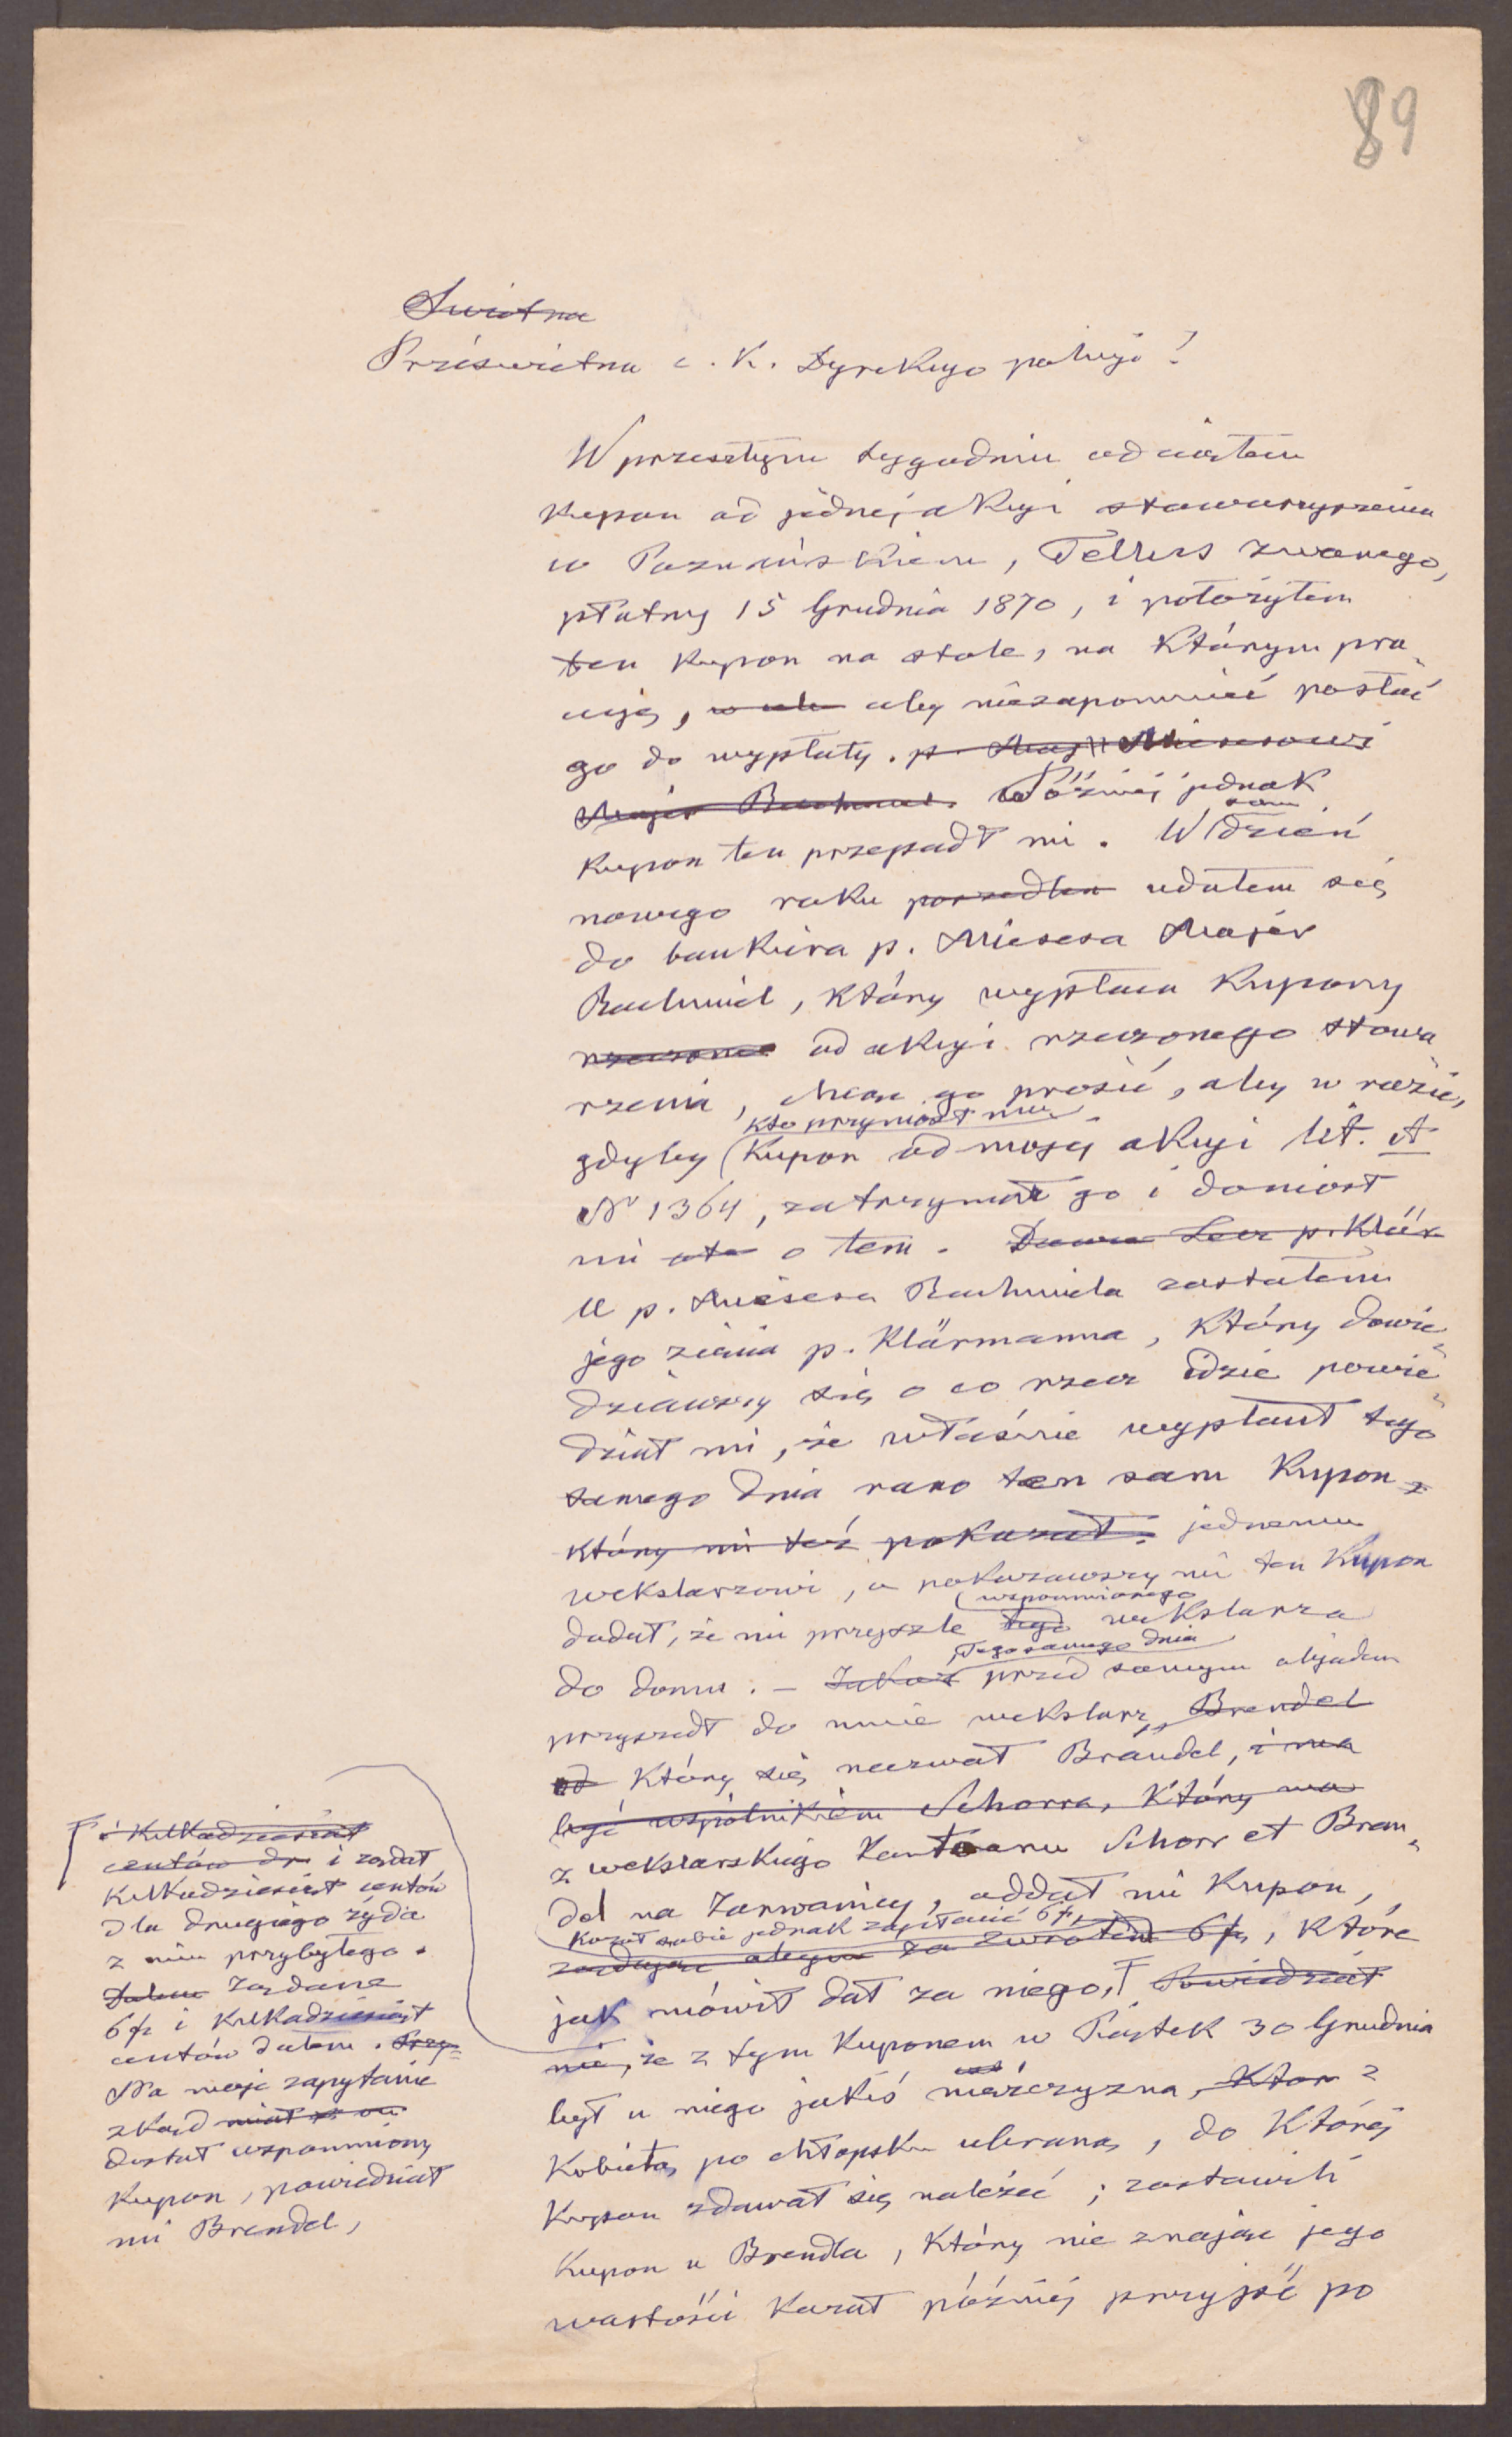 89
Swietna
Prześwietna c. K. Dyrekcyo policyi!
W przeszłym tygodniu odciąłem
kupon od jednej akcyi stowarzyszenia
w Poznańskiem, Tellus zwanego,
płatny 15 Grudnia 1870, i położyłem
ten kupon na stole, na którym pra„
cuję, aby niezapomnieć posłać
go do wypłaty. p. Majer Miesesowi
Majer Bachmiel. Później jednak
kupon ten przepadł mi. W sam dzień
nowego roku poszedłem udałem się
do bankiera p. Miesesa Majer
Rachmiel, który wypłaca kupony
rzeczone od akcyi rzeczonego stowa„
rzenia, chcąc go prosić, aby w razie,
gdyby kto przyniósł mu
kupon od mojej akcyi lit. A
No 1364, zatrzymał go i doniosł
mi o tem. Lecz p. Klär
U p. Miesesa Rachmiela zastałem
jego zięcia p. Klärmanna, który dowie„
dziawszy się o co rzecz idzie powie„
dział mi, że właśnie wypłacił tego
samego dnia rano ten sam kupon
który mi też pokazał. jednemu
wekslarzowi, a pokazawszy mi ten kupon
dodał, że mi przyszle tego wspomnionego wekslarza
do domu. – Jakoż Tego samego dnia przed samym objadem
przyszedł do mnie wekslarz, Brendel
od który się nazwał Brändel, i ma
być wspólnikiem Schorra, który ma
z wekslarskiego kantoaru Schorr et Bren„
del na Zarwanicy, oddał mi kupon,
kazał sobie jednak zapłacić 6 fr,
żądając za zwrotem 6 fr, które
jak mówił dał za niego, Powiedział
mi, że z tym kuponem w Piątek 30 Grudnia
był u niego jakiś męźczyzna, z
kobietą po chłopsku ubraną, do której
kupon zdawał się należeć; zostawili
kupon u Brendla, który nie znając jego
wartości kazał później przyjść po
i kilkadziesiąt
centów i żądał
kilkadziesiąt centów
dla drugiego żyda
z nim przybyłego.
Żądane
6 fr i kilkadziesiąt
centów dałem. Przy„
Na moje zapytanie
zkąd miał
dostał wspomniony
kupon, powiedział
mi Brendel,